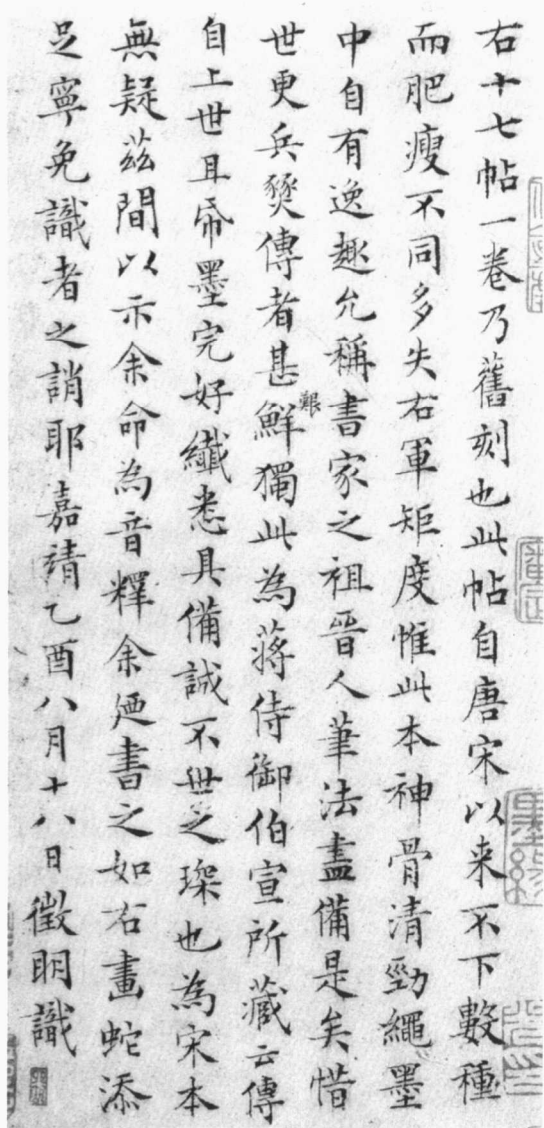 右十七帖一卷乃舊刻也此帖自唐宋以来不下數種
而肥瘦不同多失右軍矩度惟此本神骨清勁繩墨
中自有逸趣允稱書家之祖晉人筆法盡備是矣惜
世更兵燹傳者甚鮮艱獨此為蔣侍御伯宣所藏云傳
自上世且帋墨完好纖悉具備誠不世之琛也為宋本
無疑茲間以示余命為音釋余迺書之如右畫蛇添
足寧免識者之誚耶嘉靖乙酉八月十八日徵明識